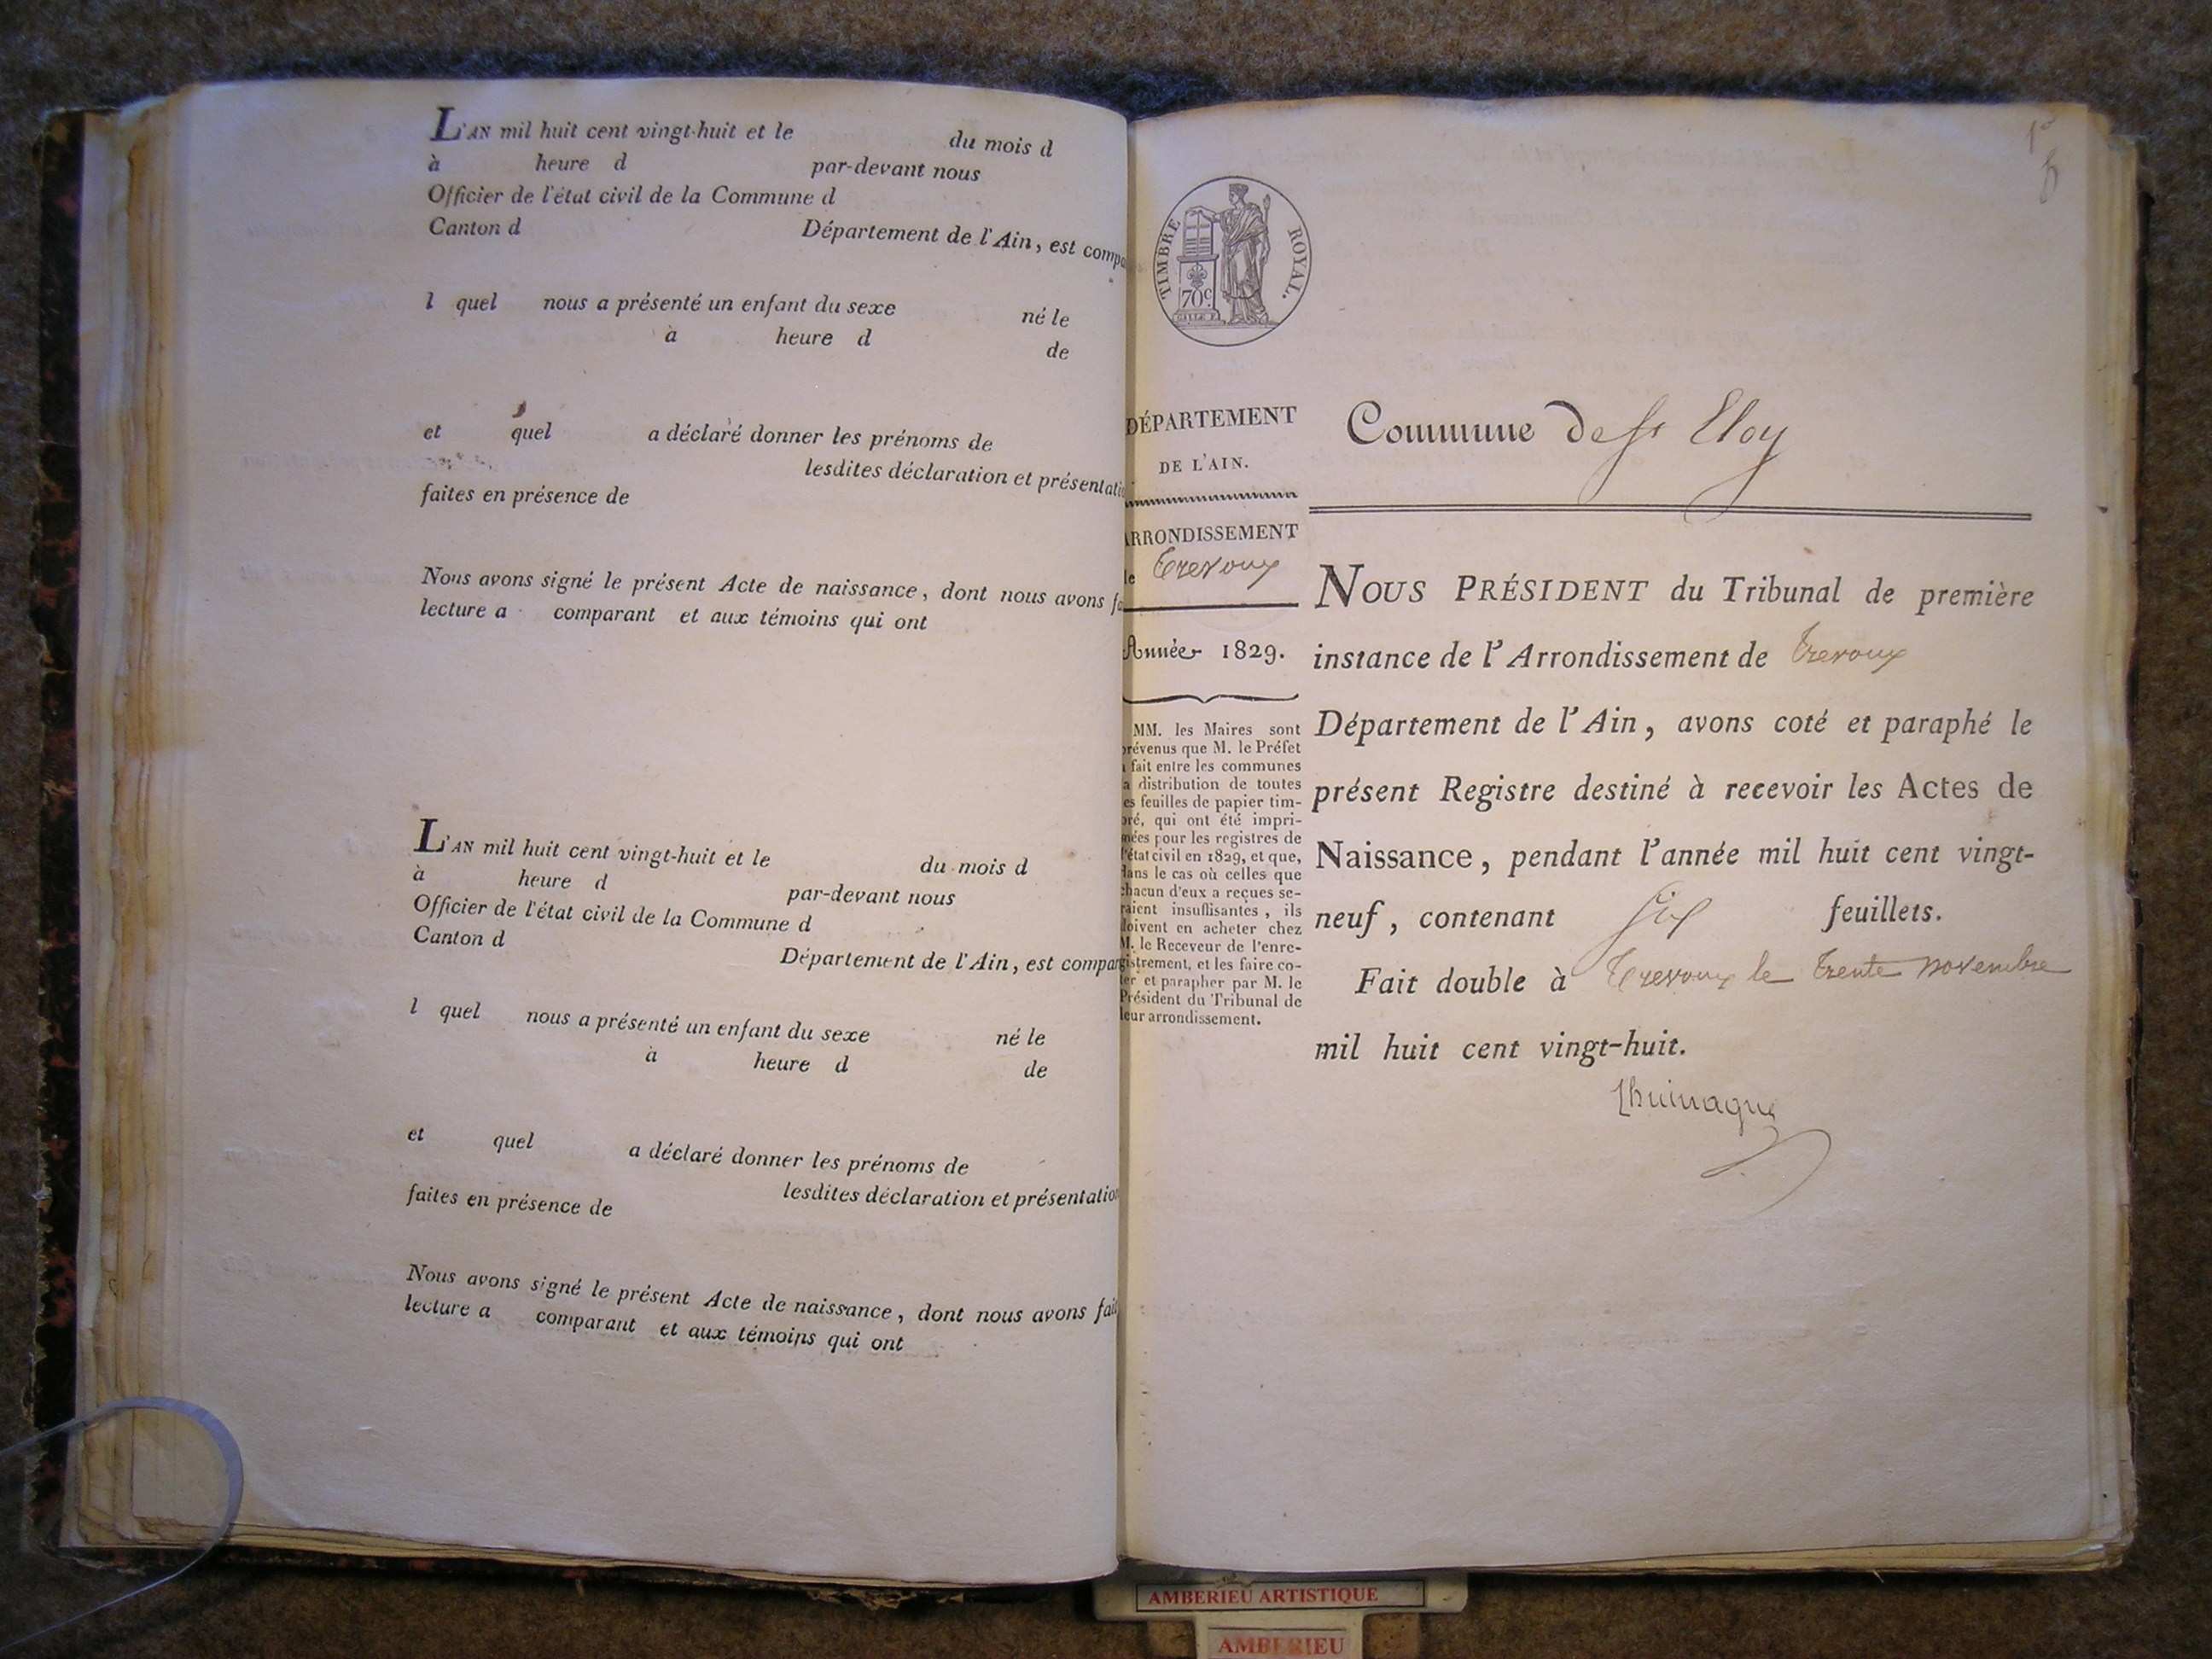 L'AN mil huit cent vingt-huit et le du mois d
à heure d par-devant nous
Officier de l'état civil de la Commune d
Canton d Département de l'Ain, est compa
l quel nous a présenté un enfant du sexe né le
à heure d de
et quel a déclaré donner les prénoms de
lesdites déclaration et présentati
faites en présence de
Nous avons signé le présent Acte de naissance, dont nous avons fa
lecture a comparant et aux témoins qui ont
L'AN mil huit cent vingt-huit et le du mois d
à heure d par-devant nous
Officier de l'état civil de la Commune d
Canton d Département de l'Ain, est compar
l quel nous a présenté un enfant du sexe né le
à heure d de
et quel a déclaré donner les prénoms de
lesdites déclaration et présentation
faites en présence de
Nous avons signé le présent Acte de naissance, dont nous avons fait
lecture a comparant et aux témoins qui ont
TIMBRE ROYAL.
70c.
DÉPARTEMENT
DE L'AIN.
ARRONDISSEMENT
de Trevoux
Année 1829.
MM. les Maires sont
prévenus que M. le Préfet
a fait entre les communes
la distribution de toutes
les feuilles de papier tim-
bré, qui ont été impri-
mées pour les registres de
l'état civil en 1829, et que,
dans le cas où celles que
chacun d'eux a reçues se-
raient insuffisantes, ils
doivent en acheter chez
M. le Receveur de l'enre-
gistrement, et les faire co-
ter et parapher par M. le
Président du Tribunal de
leur arrondissement.
Commune de St Eloy
NOUS PRÉSIDENT du Tribunal de première
instance de l'Arrondissement de Trevoux
Département de l'Ain, avons coté et paraphé le
présent Registre destiné à recevoir les Actes de
Naissance, pendant l'année mil huit cent vingt-
neuf, contenant Six feuillets.
Fait double à Trevoux le trente novembre
mil huit cent vingt-huit.
AMBERIEU ARTISTIQUE
AMBERIEU